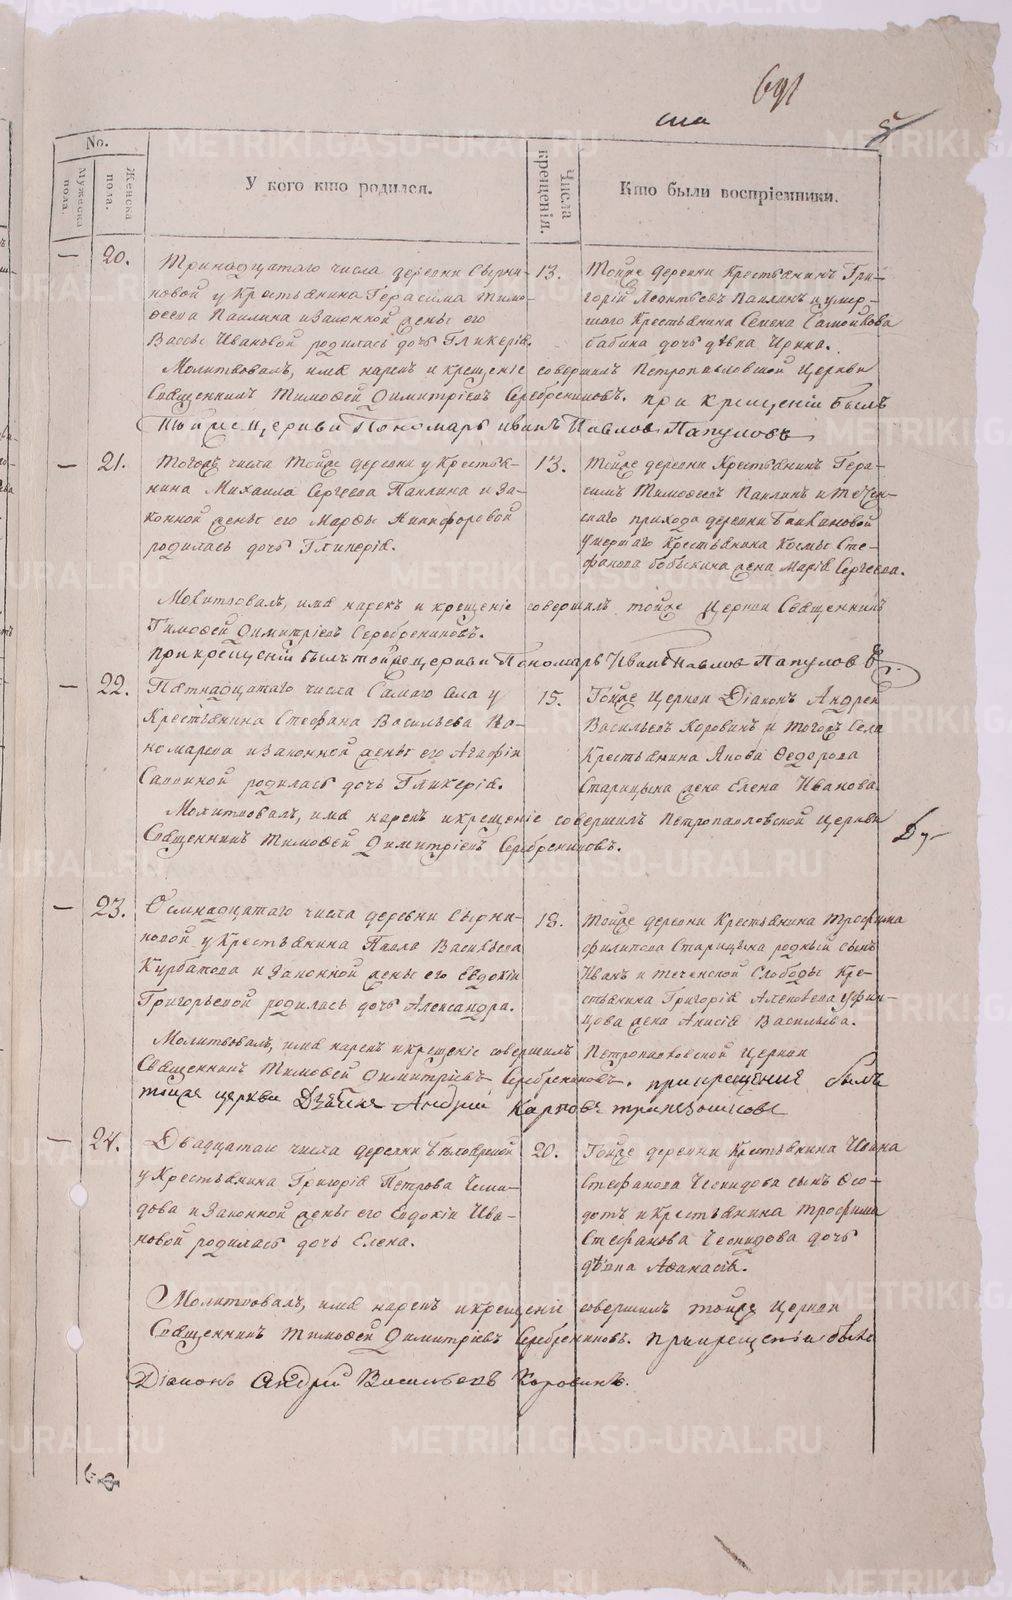 691
No.
Мужеска пола.
Женска пола.
У кого кто родился.
Числа крещенія.
Кто были воспріемники.
— 20.
Тринадцатаго числа деревни Сырни-
новой у Крестьянина Герасима Тимо-
ѳеева Паклина и законной жены его
Вассы Ивановой родилась дочь Гликерія.
13.
Тойже деревни Крестьянинъ Гри-
горій Леонтьевъ Паклинъ и умер-
шаго Крестьянина Семена Самойлова
бабина дочь дѣвка Ирина.
Молитвовалъ, имя нарекъ и крещеніе совершилъ Петропавловской Церкви
Священникъ Тимоѳей Димитріевъ Серебрениковъ. при крещеніи былъ
тойже церкви Пономарь иванъ Павловъ Папуловъ
— 21.
Тогожъ числа тойже деревни у Крестья-
нина Михаила Сергеева Паклина и за-
конной жены его Марѳы Никифоровой
родилась дочь Гликерія.
13.
Тойже деревни Крестьянинъ Гера-
симъ Тимоѳеевъ Паклинъ и Течен-
скаго прихода деревни
умершаго Крестьянина Космы Сте-
фанова бобыкина жена Марія Сергеева.
Молитвовалъ, имя нарекъ и крещеніе совершилъ тойже Церкви Священникъ
Тимоѳей Димитріевъ Серебрениковъ.
при крещеніи былъ тойже церкви Пономарь Иванъ Павлов Папулов
— 22.
Пятнадцатаго числа Самаго села у
Крестьянина Стефана Васильева По-
номарева и законной жены его Агафіи
Савиной родилась дочь Гликерія.
15.
Тойже Церкви Діаконъ Андрей
Васильевъ Коровинъ и тогожъ Села
Крестьянина Якова Ѳедорова
Старицына жена Елена Иванова.
Молитвовалъ, имя нарекъ и крещеніе совершилъ Петропавловской Церкви
Священникъ Тимоѳей Димитріевъ Серебрениковъ.
— 23.
Осмнадцатаго числа деревни Сырни-
новой у Крестьянина Павла Васильева
Курбатова и законной жены его Евдокіи
Григорьевой родилась дочь Александра.
18.
Тойже деревни Крестьянина Трофима
Филипова Старицына родный сынъ
Иванъ и Теченской Слободы Кре-
стьянина Григорія
жена Анисія Васильева.
Молитвовалъ, имя нарекъ и крещеніе совершилъ Петропавловской Церкви
Священникъ Тимоѳей Димитріевъ Серебрениковъ. при крещение былъ
тойже церкви Дьячекъ Андрій Карповъ трапезниковъ
— 24.
Двадцатаго числа деревни
у Крестьянина Григорія Петрова Чеки-
дова и законной жены его Евдокіи Ива-
новой родилась дочь Елена.
20.
Тойже деревни Крестьянина Ивана
Стефанова Чекидова сынъ Ѳео-
дотъ и Крестьянина Трофима
Стефанова Чекидова дочь
дѣвка Аѳанасія.
Молитвовалъ, имя нарекъ и крещеніе совершилъ тойже Церкви
Священникъ Тимоѳей Димитріевъ Серебрениковъ. при крещеніи былъ
Діаконъ Андрій Васильевъ Коровинъ.